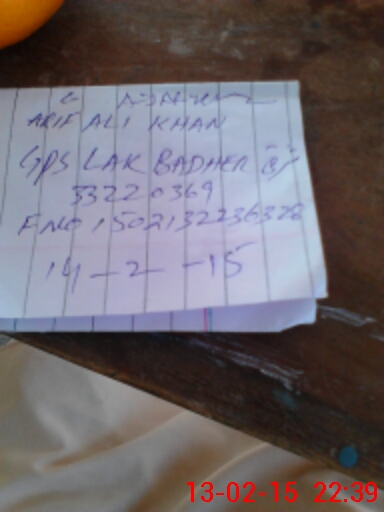 ARIF ALI KHAN
GPS LAK BADHER
33220369
F NO 1502132236328
14-2-15
13-02-15 22:39